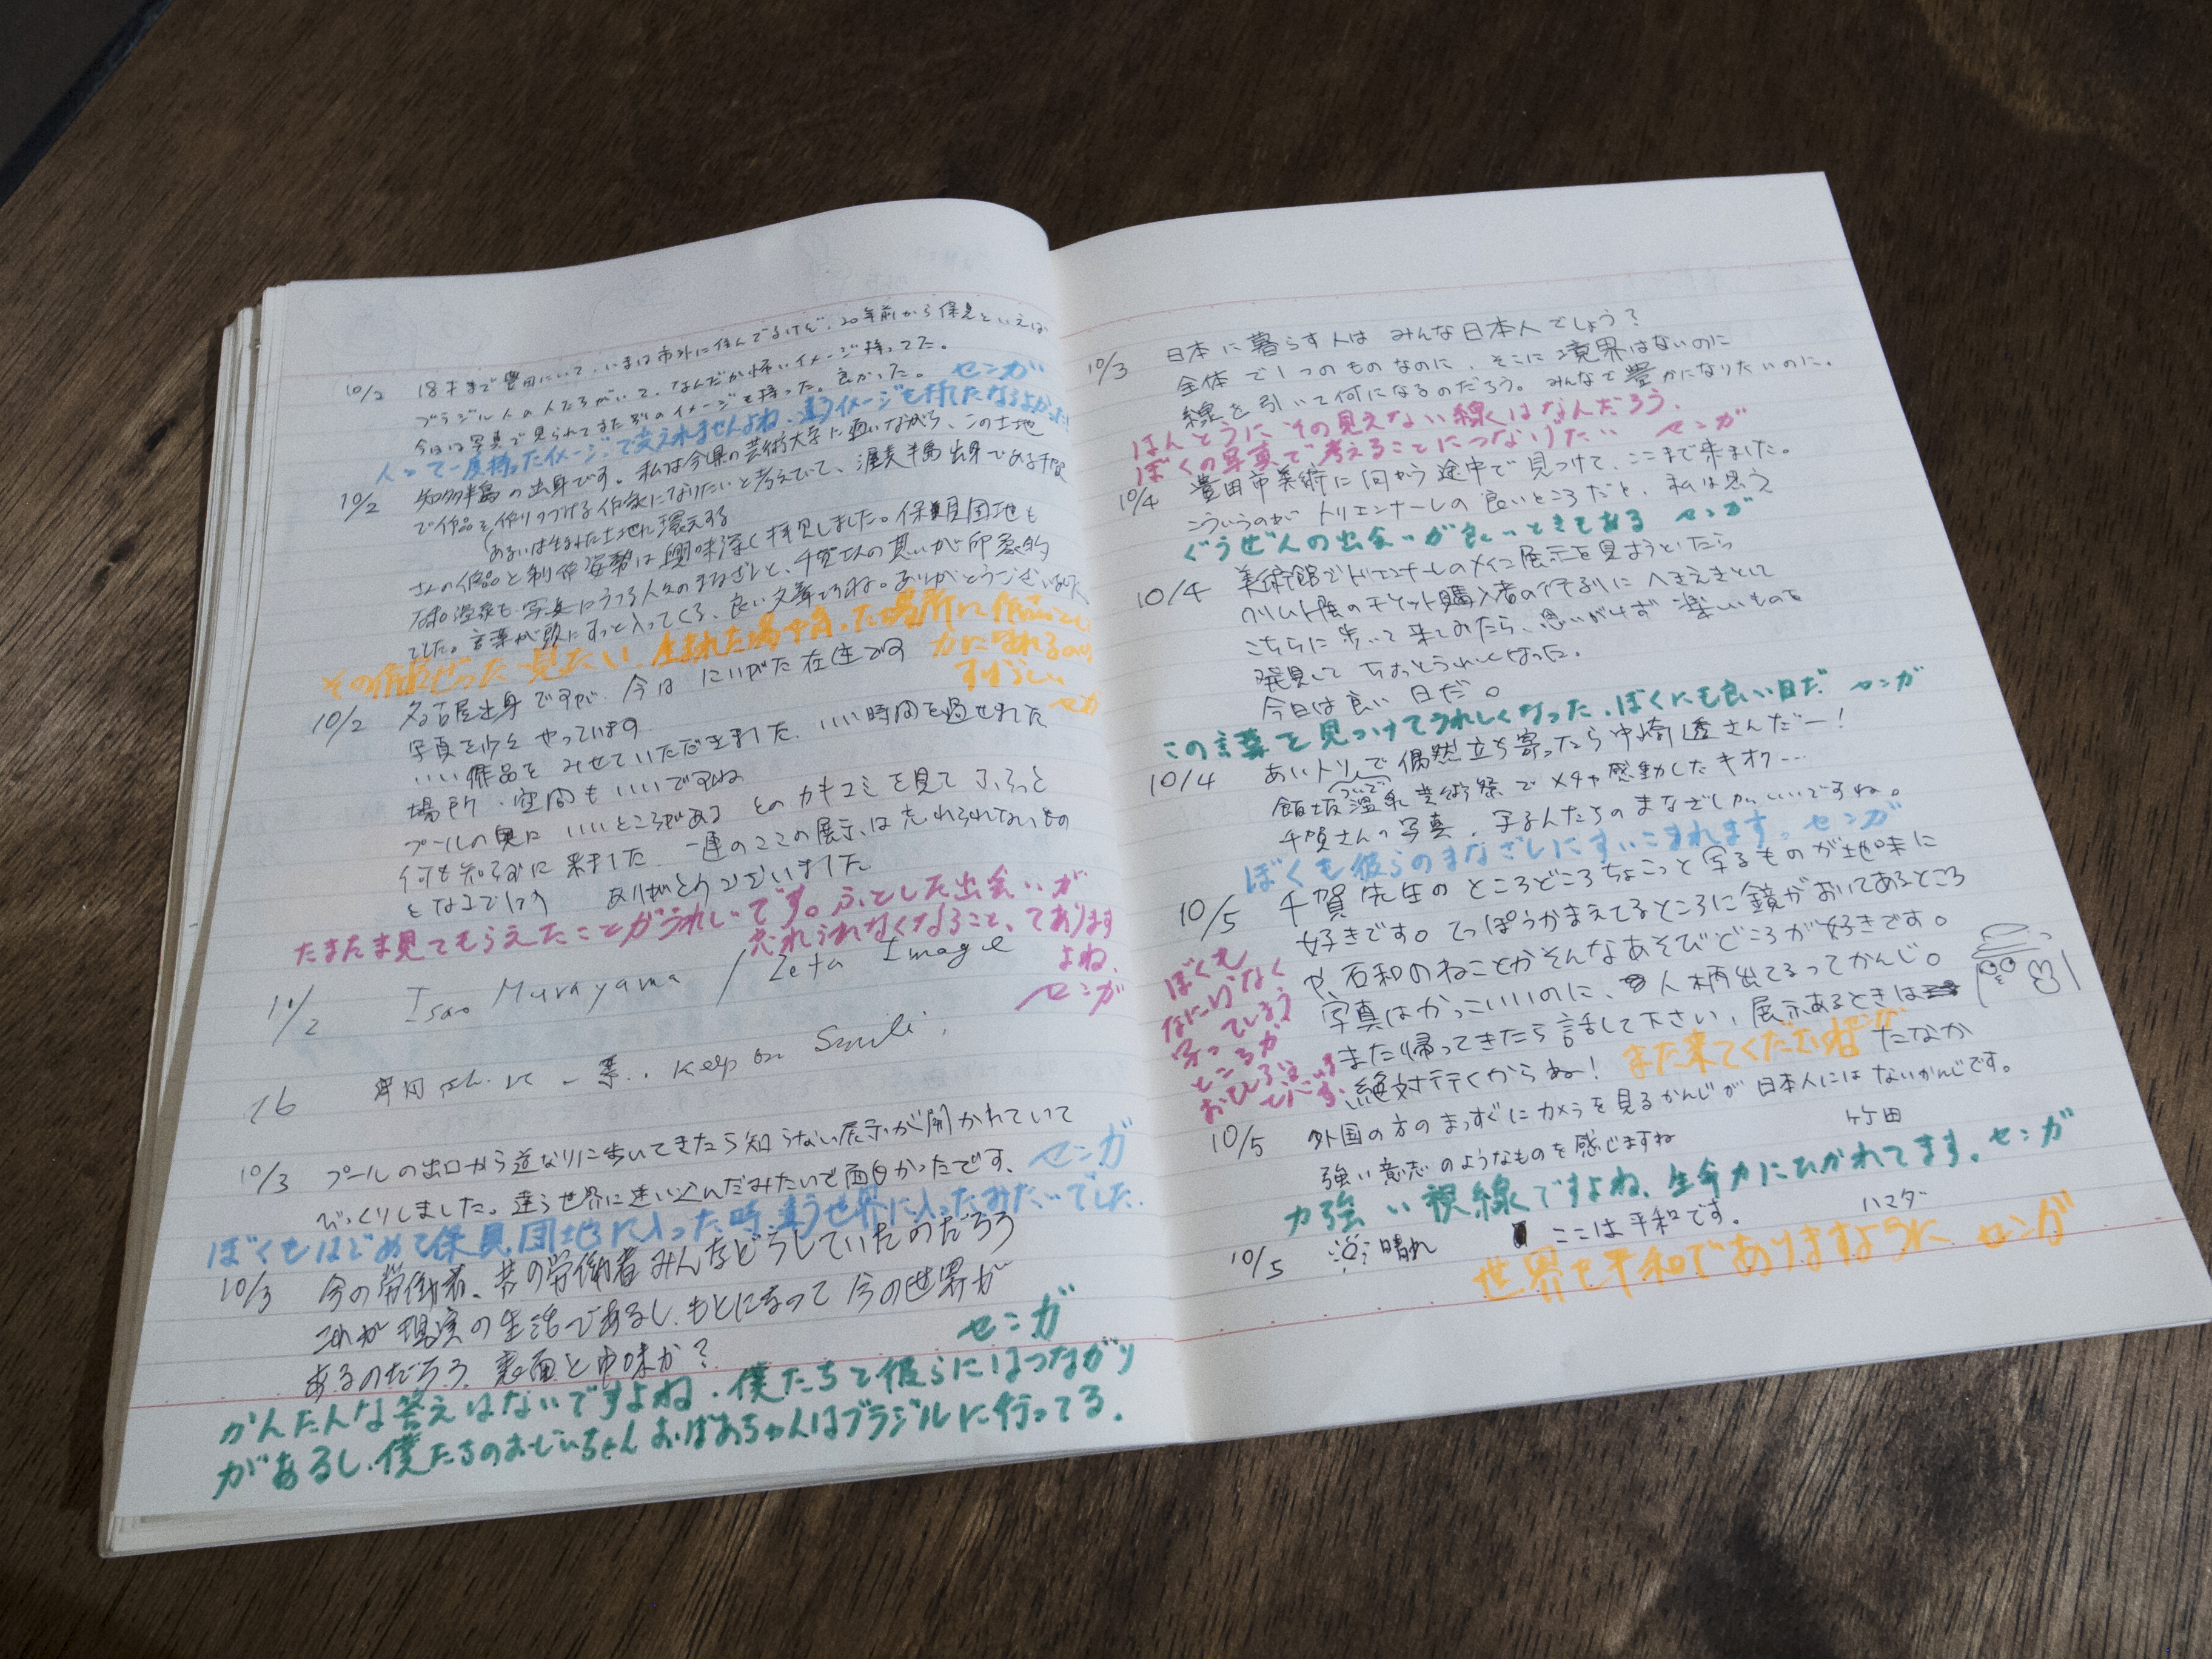 10/2 18才まで豊田にいて、いまは市外に住んでるけど、20年前から保見といえば
ブラジル人の人たちがいて、なんだか怖いイメージ持ってた。
今日は写真で見られてまた別のイメージを持った。良かった。 センガ
人って一度持ったイメージって変えれませんよね、違うイメージを持てたならよかった
10/2 知多半島の出身です。私は今県の芸術大学に通いながら、この土地
で作品を作りつづける作家になりたいと考えていて、渥美半島出身である千賀
(あるいは生まれた土地に還元する
さんの作品と制作姿勢は興味深く拝見しました。保見団地も
石和温泉も、写真にうつる人々のまなざしと、千賀さんの思いが印象的
でした。言葉が頭にすっと入ってくる、良い文章ですね。ありがとうございました。
その作品ぜったい見たい、生まれた場や育った場所に作品として
かに
すばらしい
センガ
10/2 名古屋出身ですが、今は にいがた在住です
写真を少々やっています
いい作品を みせていただきました、いい時間を過せました
場所・空間もいいですね
プールの奥に いいところがある とのカキコミを見て ふらっと
何も知らずに来ました 一連のここの展示は忘れられないもの
となるでしょう ありがとうございました
たまたま見てもらえたことがうれしいです。ふとした出会いが
忘れられなくなること、てあります
よね、
センガ
10/2 Isao Murayama / Zeta Image
16 Keep on Smile,
10/3 プールの出口から道なりに歩いてきたら知らない展示が開かれていて
びっくりしました。違う世界に迷い込んだみたいで面白かったです、 センガ
ぼくもはじめて保見団地に入った時、違う世界に入ったみたいでした、
10/3 今の労働者、昔の労働者みんなどうしていたのだろう
これが現実の生活であるし、もとになって今の世界が
あるのだろう、表面と中味か?
センガ
かんたんな答えはないですよね、僕たちと彼らにはつながり
があるし、僕たちのおじいちゃんおばあちゃんはブラジルに行ってる、
10/3 日本に暮らす人は みんな日本人でしょう?
全体で1つのものなのに、そこに境界はないのに
線を引いて何になるのだろう。みんなで豊かになりたいのに。
ほんとうにその見えない線はなんだろう、
ぼくの写真で考えることにつなげたい センガ
10/4 豊田市美術に向かう途中で見つけて、ここまで来ました。
こういうのがトリエンナーレの良いところだと、私は思う
ぐうぜんの出会いが良いときてある センガ
10/4 美術館でトリエンナーレのメイン展示を見ようといたら
クリムト展のチケット購入者の行列にへきえきとして
こちらに歩いて来てみたら、思いがけず楽しいものを
発見して ちょっとうれしくなった。
今日は良い日だ。
この言葉を見つけてうれしくなった、ぼくにも良い日だ センガ
10/4 あいトリで偶然立ち寄ったら中崎透さんだー!
飯坂温泉芸術祭でメチャ感動したキオク…
千賀さんの写真、写る人たちのまなざしがいいですね。
ぼくも彼らのまなざしにすいこまれます。センガ
10/5 千賀先生のところどころちょこっと写るものが地味に
好きです。てっぽうかまえてるところに鏡がおいてあるところ
や、石和のねことかそんなあそびどころが好きです。
写真はかっこいいのに、人柄出てるってかんじ。
また帰ってきたら話して下さい、展示あるときは
絶対行くからねー! また来てください たなか
ぼくも
なにげなく
写ってしまう
ところが
おもしろい
です、
10/5 外国の方のまっすぐにカメラを見るかんじが日本人にはないかんじです。
強い意志のようなものを感じますね 竹田
力強い視線ですよね、生命力にひかれてます。センガ
10/5 晴れ ここは平和です。 ハマダ
世界も平和でありますように センガ